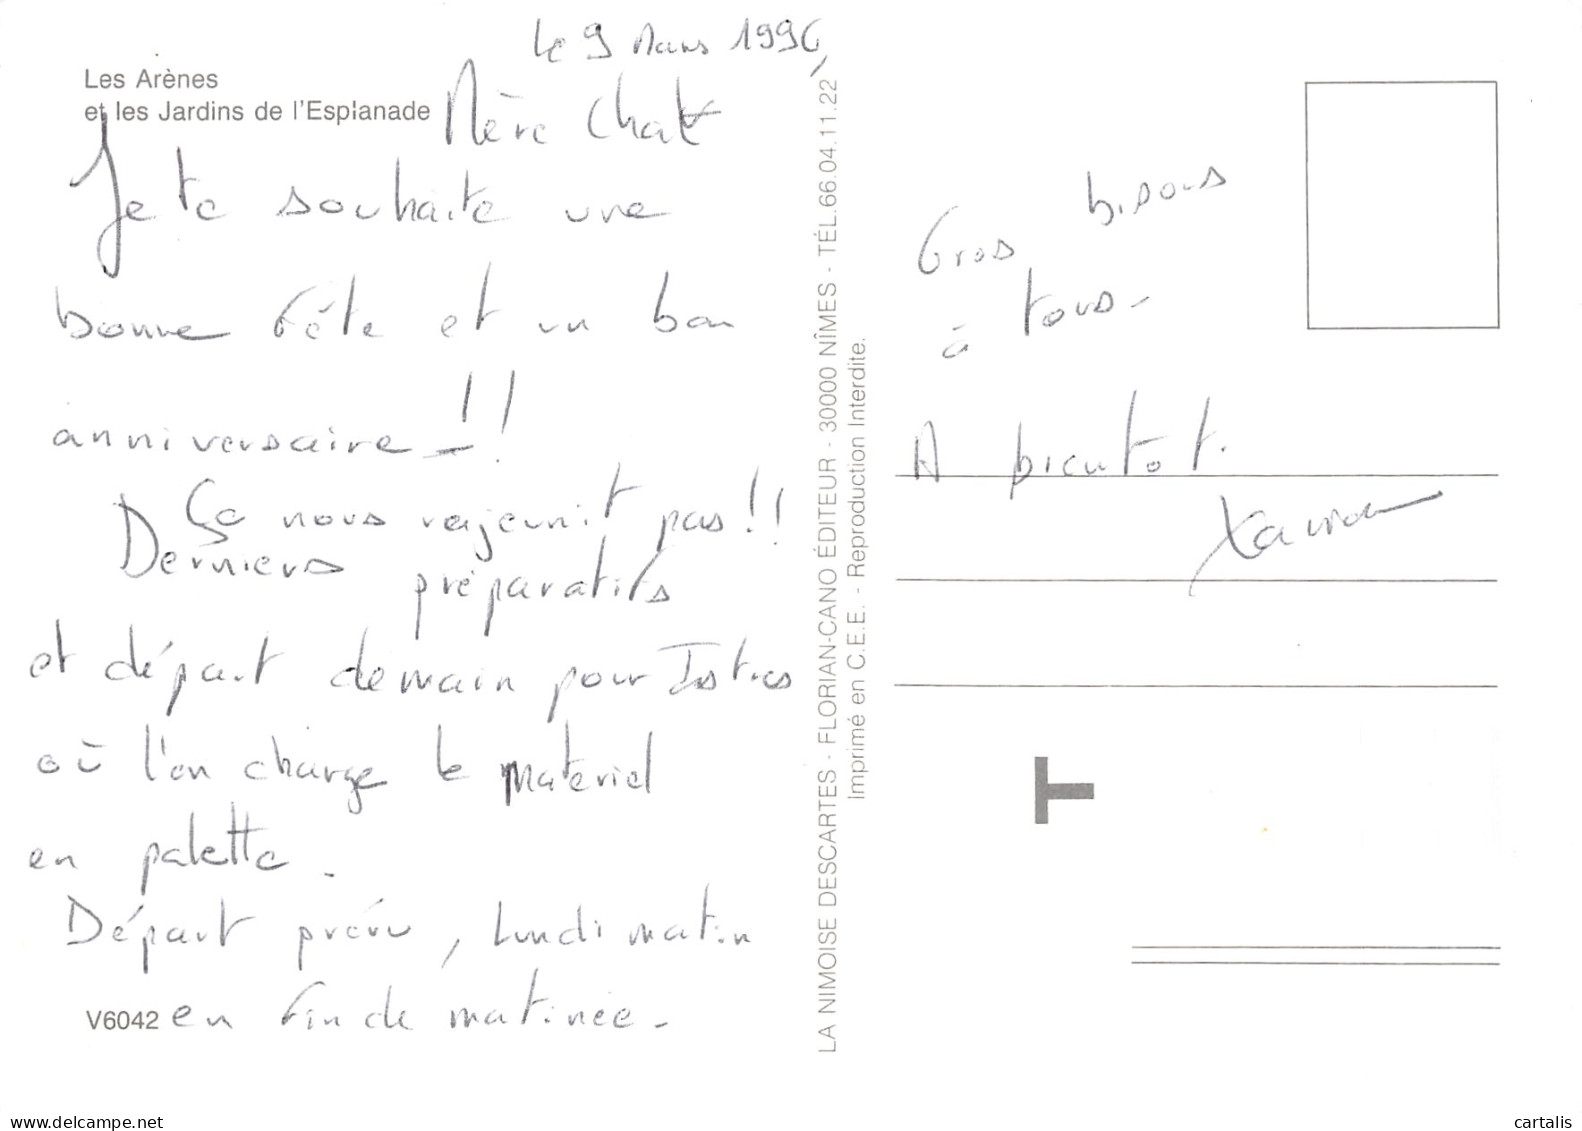 Les Arènes
et les Jardins de l'Esplanade
le 9 Mars 1996,
Mère Chat
Je te souhaite une
bonne fête et un bon
anniversaire - !!
Ça nous rajeunit pas !!
Derniers préparatifs
et départ demain pour Istres
où l'on charge le matériel
en palette.
Départ prévu, lundi matin
en fin de matinée -
V6042
LA NIMOISE DESCARTES - FLORIAN-CANO ÉDITEUR - 30000 NÎMES - TÉL. 66.04.11.22
Imprimé en C.E.E. - Reproduction Interdite.
Gros bisous
à tous -
A bientot.
T
www.delcampe.net
cartalis